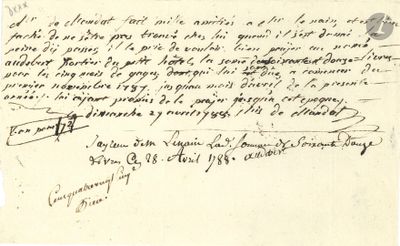 Mr de Mandat fait mille amitiés a Mr le nain, et est bien
faché de ne s'être pas trouvé chez lui quand il s'est donné la
peine d'y passer. il le prie de vouloir bien payer au nommé
audebert portier du petit hôtel la somme de soixante et douze livres
pour les cinq mois de gages dont qui lui sont dus, a commencer du
premier novembre 1787. jusqu'au mois d'avril de la presente
année. lui ayant promis de le payer jusqu'a cet epoque,
a dimanche 27 avril 1788. Mis de Mandat
Bon pour 72
J'ay reçu de M Lenain Lad. somme de Soixante Douze
Livres Ce 28. Avril 1788.